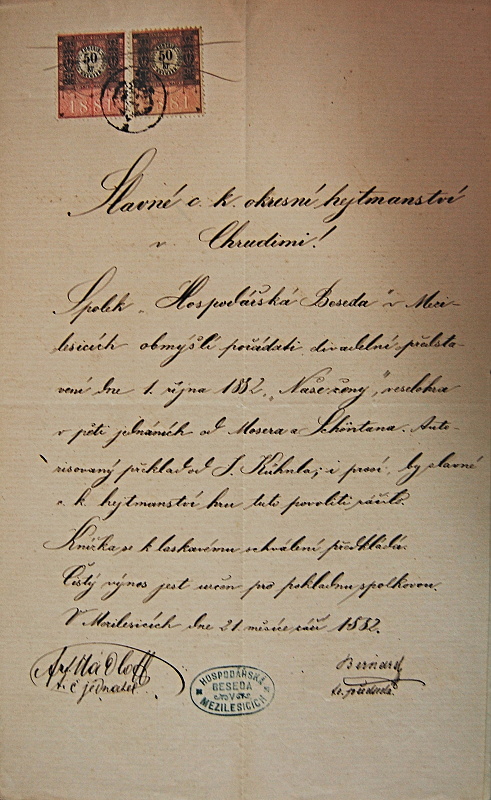 50
kr
50
kr
1881
1881
Slavné c. k. okresní hejtmanství
v Chrudimi!
Spolek „Hospodářská Beseda" v Mezi-
lesicích obmýšlí pořádati divadelní předsta-
vení dne 1. října 1882, „Naše ženy", veselohra
v pěti jednáních od Mosera a Schöntana. Auto-
risovaný překlad od J. Kühnla; i prosí, by slavné
c. k. hejtmanství hru tuto povoliti ráčilo.
Knížka se k laskavému schválení předkládá.
Čistý výnos jest určen pro pokladnu spolkovou.
V Mezilesicích dne 21. měsíce září 1882.
t. č. jednatel
Bernard
HOSPODÁŘSKÁ
BESEDA
V
MEZILESICÍCH